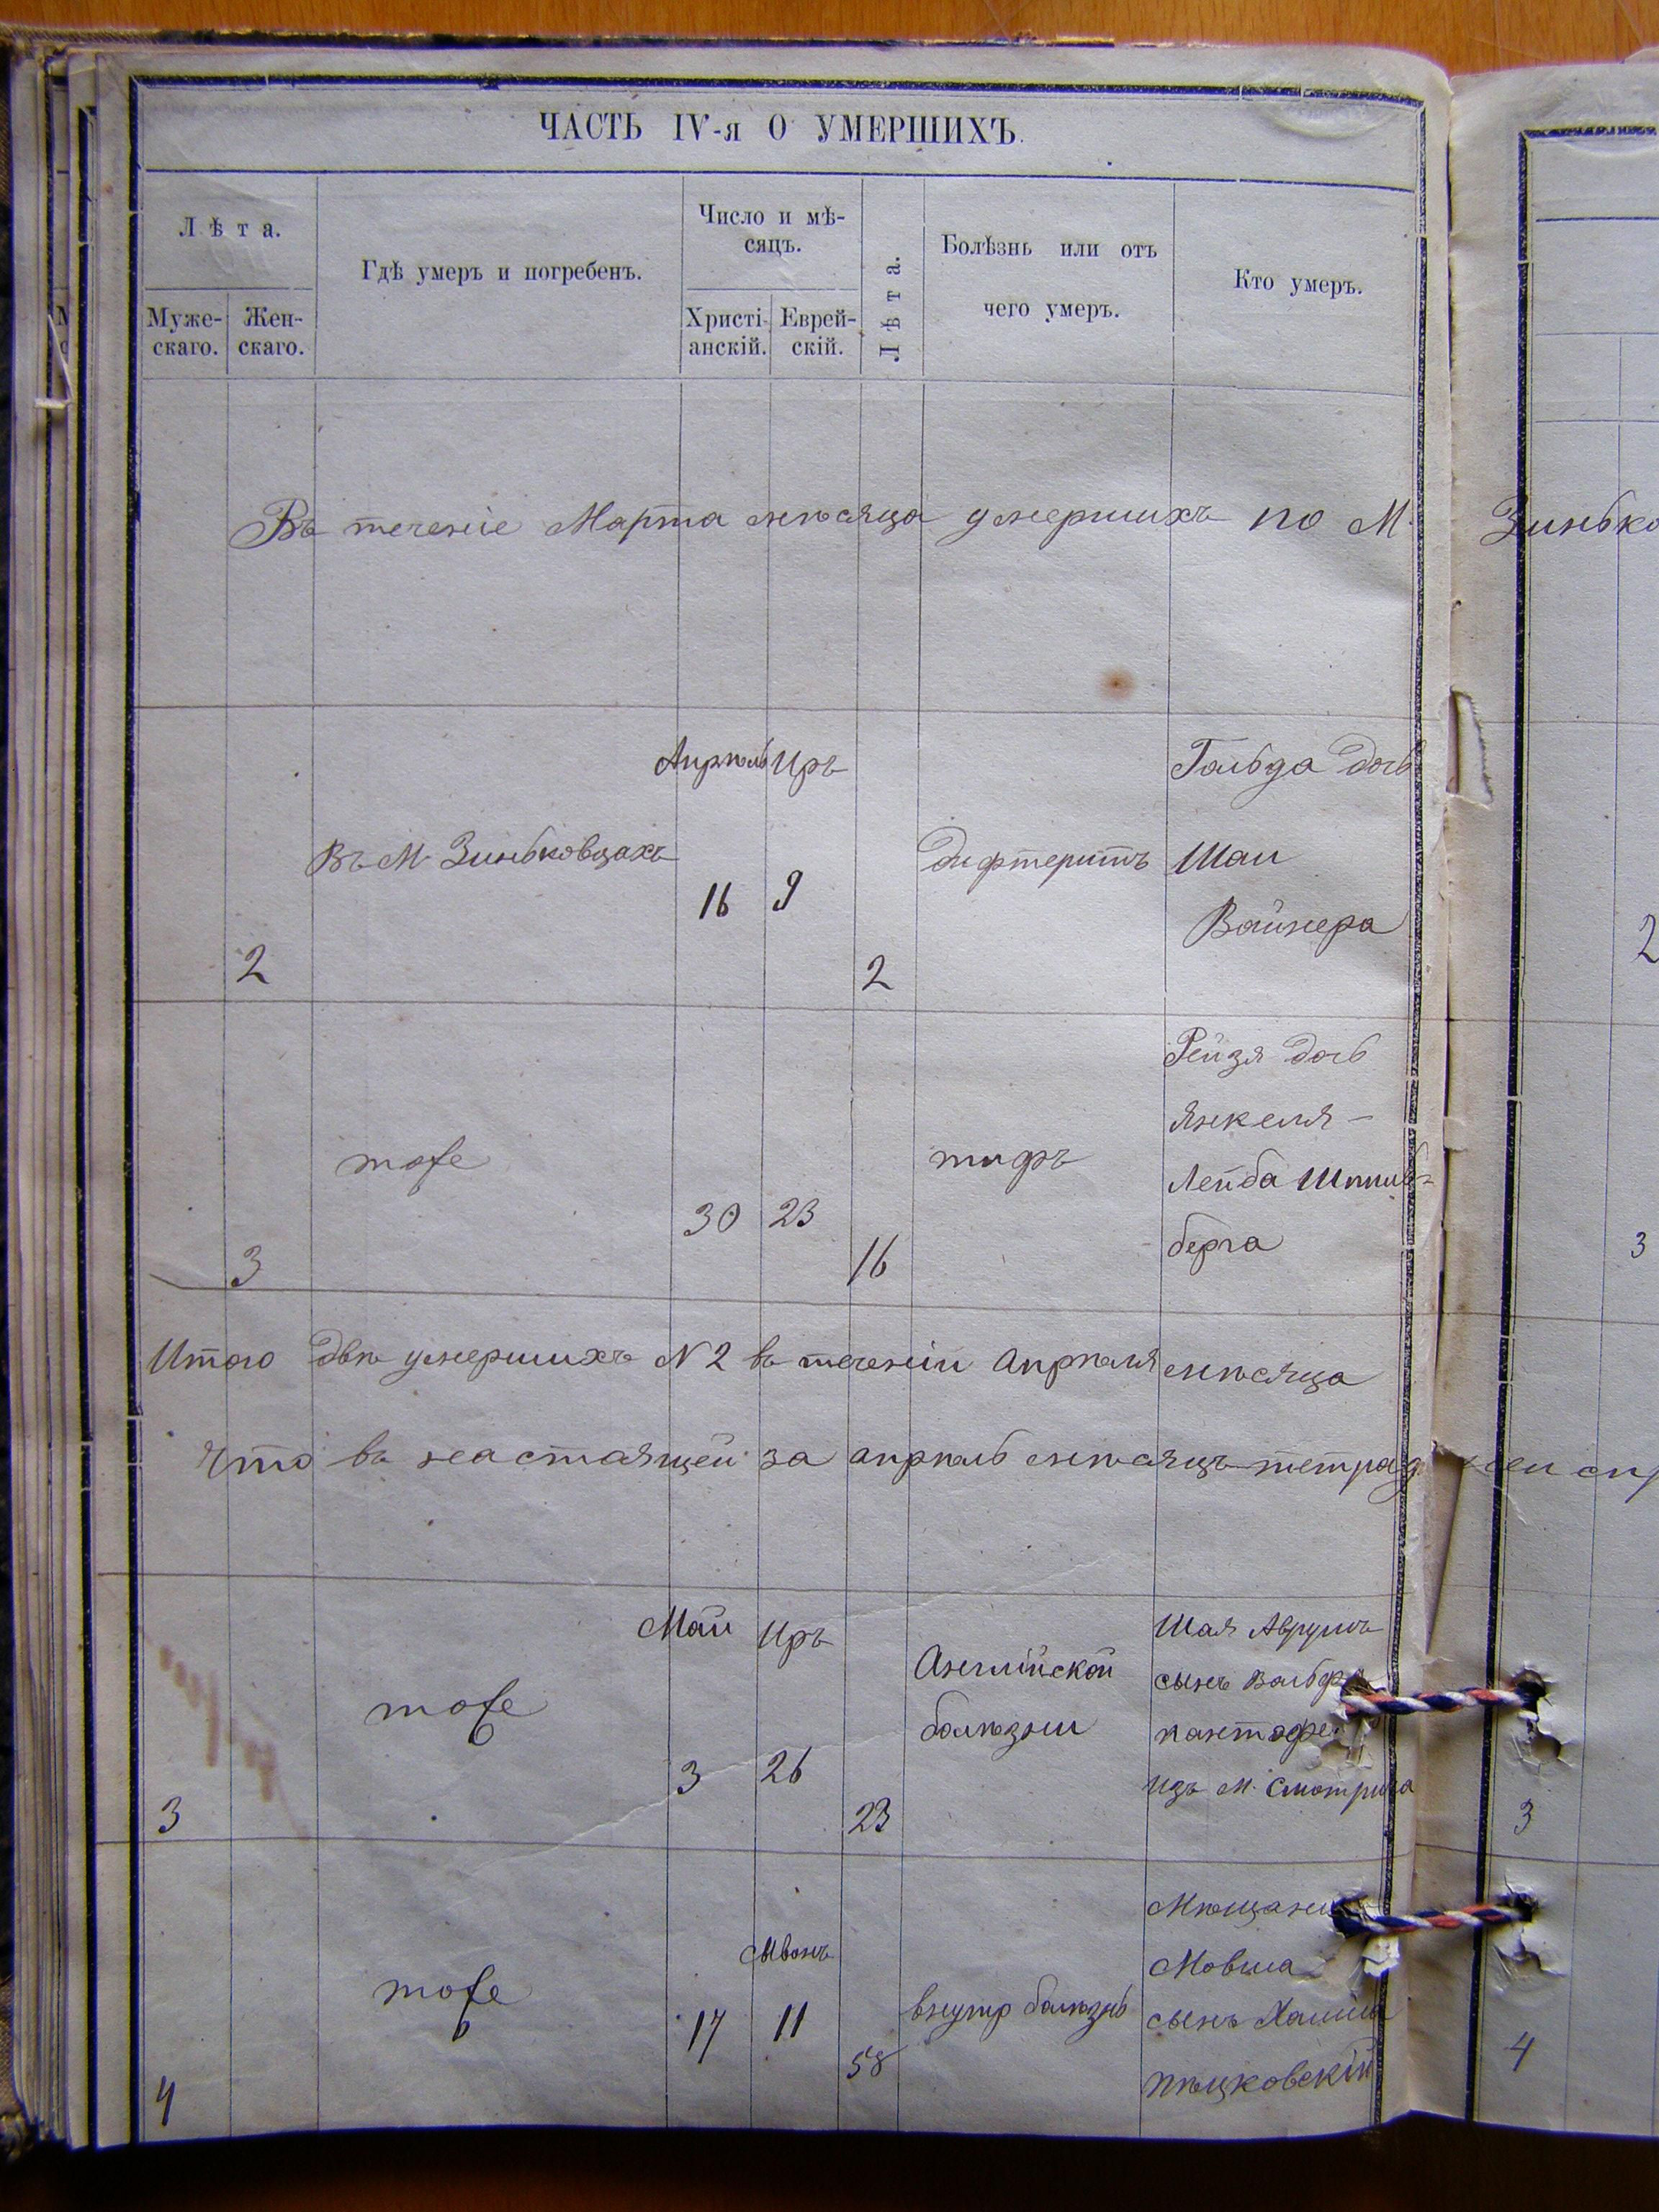 ЧАСТЬ IV-я О УМЕРШИХЪ.
Лѣта.
Муже-
скаго.
Жен-
скаго.
Гдѣ умеръ и погребенъ.
Число и мѣ-
сяцъ.
Христі-
анскій.
Еврей-
скій.
Лѣта.
Болѣзнь или отъ
чего умеръ.
Кто умеръ.
Въ теченіе Марта мѣсяца умершихъ по М. Зинько
Апрѣль Иръ
Гольда дочь
Въ М. Зиньковцахъ
16 9
Дифтеритъ
Шаи
Вайнера
2
2
2
Рейзя дочь
Янкеля-
тоже
тифъ
Лейба
30 23
берга
3
16
3
Итого двѣ умершихъ N 2 въ теченіи Апрѣля мѣсяца
Что въ настоящей за апрѣль мѣсяцъ
Май Иръ
Шая Аврумъ
Англійской
сынъ
тоже
болѣзни
3 26
изъ М. Смотрича
3
23
3
Сывонъ
Мовша
тоже
внутр болѣзнь
сынъ
17 11
58
4
4